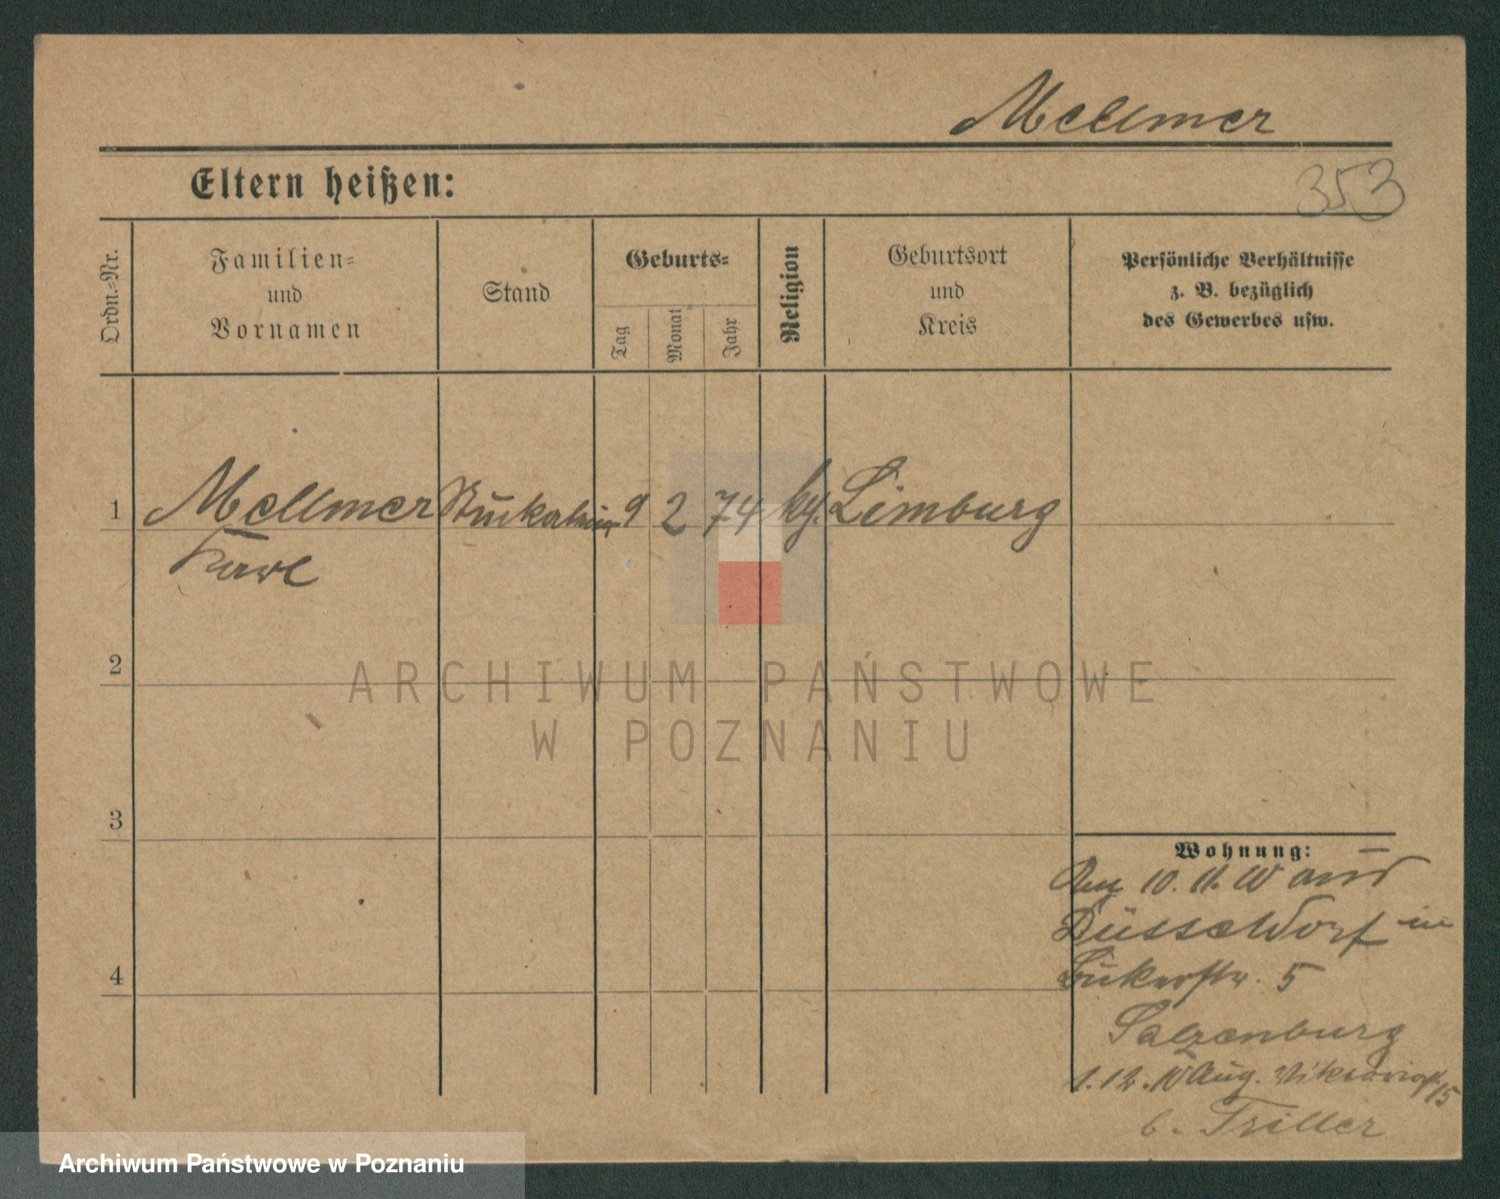 Mellmer
353
Eltern heißen:
Ordn.=Nr.
Familien=
und
Vornamen
Stand
Geburts=
Tag
Monat
Jahr
Religion
Geburtsort
und
Kreis
Persönliche Verhältnisse
z. B. bezüglich
des Gewerbes usw.
1 Mellmer 9 2 74 kg. Limburg
Karl
2
ARCHIWUM PAŃSTWOWE
W POZNANIU
3
Wohnung:
10. 11. 10 aus
Düsseldorf in
5
Salzenburg
1. 12. 10 Aug. Viktoriastr. 15
b. Triller
4
Archiwum Państwowe w Poznaniu